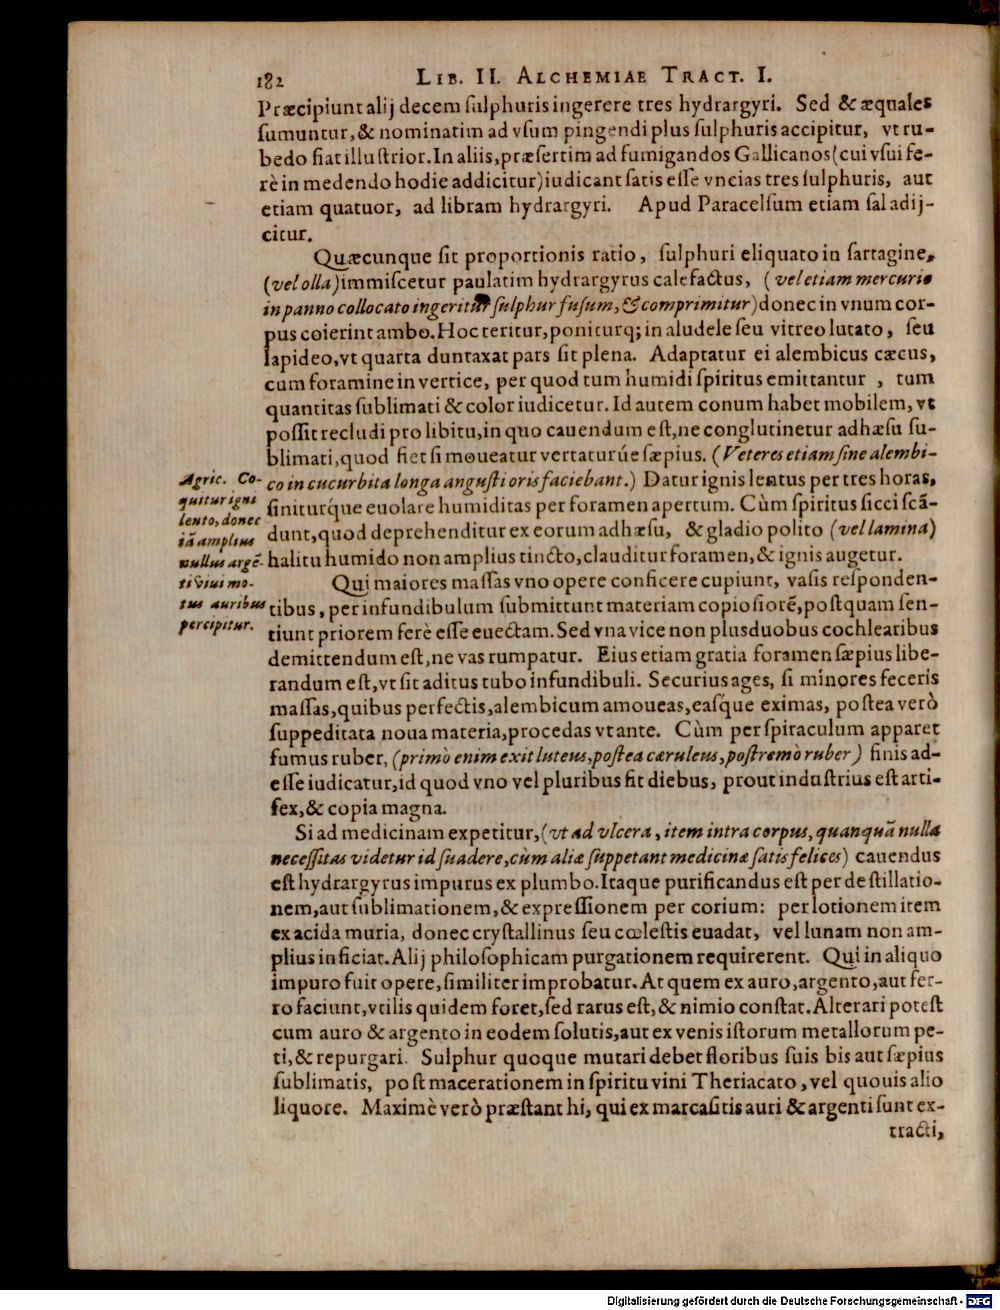 182 LIB. II. ALCHEMIAE TRACT. I.
Præcipiunt alij decem ſulphuris ingerere tres hydrargyri. Sed & æquales
ſumuntur, & nominatim ad vſum pingendi plus ſulphuris accipitur, vt ru-
bedo fiat illuſtrior. In aliis, præſertim ad fumigandos Gallicanos (cui vſui fe-
rè in medendo hodie addicitur) iudicant ſatis eſſe vncias tres ſulphuris, aut
etiam quatuor, ad libram hydrargyri. Apud Paracelſum etiam ſal adij-
citur.
Quæcunque ſit proportionis ratio, ſulphuri eliquato in ſartagine,
(vel olla) immiſcetur paulatim hydrargyrus calefactus, (vel etiam mercurio
in panno collocato ingeritur ſulphur fuſum, & comprimitur) donec in vnum cor-
pus coierint ambo. Hoc teritur, poniturq; in aludele ſeu vitreo lutato, ſeu
lapideo, vt quarta duntaxat pars ſit plena. Adaptatur ei alembicus cæcus,
cum foramine in vertice, per quod tum humidi ſpiritus emittantur, tum
quantitas ſublimati & color iudicetur. Id autem conum habet mobilem, vt
poſſit recludi pro libitu, in quo cauendum eſt, ne conglutinetur adhæſu ſu-
blimati, quod fiet ſi moueatur vertaturúe ſæpius. (Veteres etiam ſine alembi-
co in cucurbita longa anguſti oris faciebant.) Datur ignis lentus per tres horas,
ſiniturque euolare humiditas per foramen apertum. Cùm ſpiritus ſicci ſcã-
dunt, quod deprehenditur ex eorum adhæſu, & gladio polito (vel lamina)
halitu humido non amplius tincto, clauditur foramen, & ignis augetur.
Agric. Co-
quitur igni
lento, donec
iã amplius
nullus argẽ-
ti viui mo-
tus auribus
percipitur.
Qui maiores maſſas vno opere conficere cupiunt, vaſis reſponden-
tibus, per infundibulum ſubmittunt materiam copioſiorẽ, poſtquam ſen-
tiunt priorem ferè eſſe euectam. Sed vna vice non plus duobus cochlearibus
demittendum eſt, ne vas rumpatur. Eius etiam gratia foramen ſæpius libe-
randum eſt, vt ſit aditus tubo infundibuli. Securius ages, ſi minores feceris
maſſas, quibus perfectis, alembicum amoueas, eaſque eximas, poſtea verò
ſuppeditata noua materia, procedas vt ante. Cùm per ſpiraculum apparet
fumus ruber, (primò enim exit luteus, poſtea cæruleus, poſtremò ruber) finis ad-
eſſe iudicatur, id quod vno vel pluribus fit diebus, prout induſtrius eſt arti-
fex, & copia magna.
Si ad medicinam expetitur, (vt ad vlcera, item intra corpus, quanquã nulla
neceſſitas videtur id ſuadere, cùm aliæ ſuppetant medicinæ ſatis felices) cauendus
eſt hydrargyrus impurus ex plumbo. Itaque purificandus eſt per deſtillatio-
nem, aut ſublimationem, & expreſſionem per corium: per lotionem item
ex acida muria, donec cryſtallinus ſeu cœleſtis euadat, vel lunam non am-
plius inficiat. Alij philoſophicam purgationem requirerent. Qui in aliquo
impuro fuit opere, ſimiliter improbatur. At quem ex auro, argento, aut fer-
ro faciunt, vtilis quidem foret, ſed rarus eſt, & nimio conſtat. Alterari poteſt
cum auro & argento in eodem ſolutis, aut ex venis iſtorum metallorum pe-
ti, & repurgari. Sulphur quoque mutari debet floribus ſuis bis aut ſæpius
ſublimatis, poſt macerationem in ſpiritu vini Theriacato, vel quouis alio
liquore. Maximè verò præſtant hi, qui ex marcaſitis auri & argenti ſunt ex-
tracti,
Digitalisierung gefördert durch die Deutsche Forschungsgemeinschaft - DFG